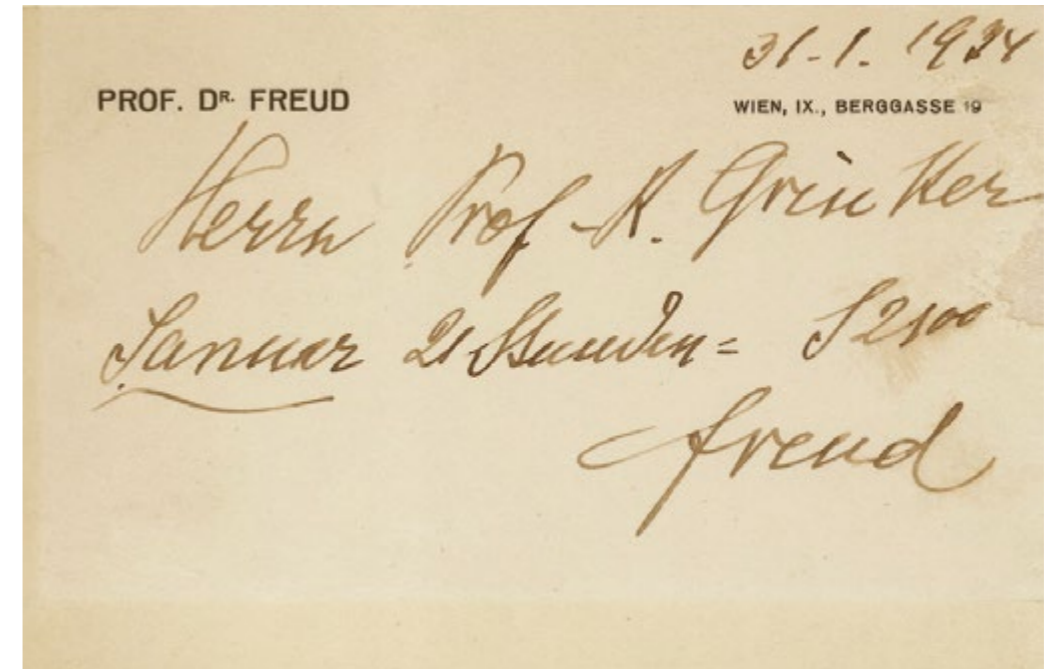 31-1. 1934
PROF. DR. FREUD
WIEN, IX., BERGGASSE 19
Herrn Prof. R. Grinker
Januar 21 Stunden = S 2100
freud